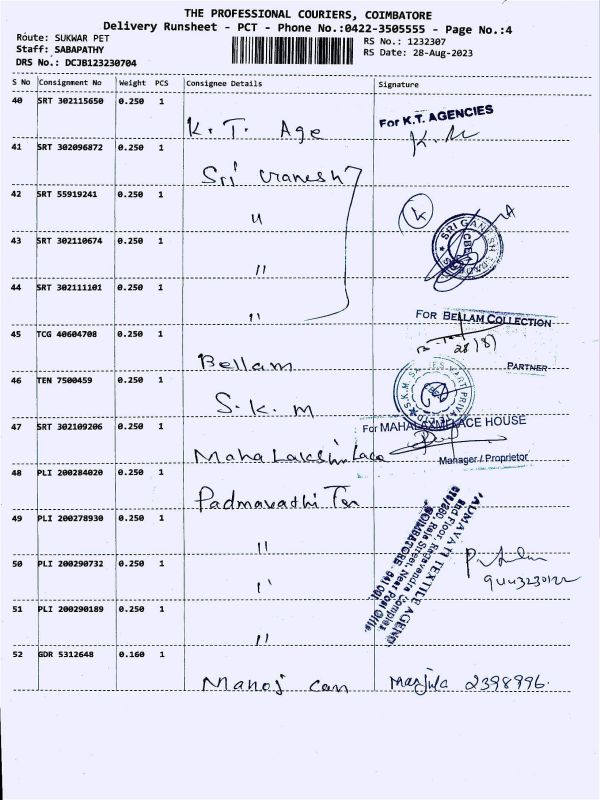 THE PROFESSIONAL COURIERS, COIMBATORE
Delivery Runsheet - PCT - Phone No.:0422-3505555 - Page No.:4
Route: SUKWAR PET
RS No.: 1232307
Staff: SABAPATHY
RS Date: 28-Aug-2023
DRS No.: DCJB123230704
S No Consignment No Weight PCS Consignee Details Signature
40 SRT 302115650 0.250 1
K. T. Age
For K.T. AGENCIES
41 SRT 302096872 0.250 1
Sri Ganesh
42 SRT 55919241 0.250 1
"
SRI GANESH
43 SRT 302110674 0.250 1
"
44 SRT 302111101 0.250 1
"
FOR BELLAM COLLECTION
45 TCG 40604708 0.250 1
Bellam
28/8)
PARTNER
46 TEN 7500459 0.250 1
S. K. M
47 SRT 302109206 0.250 1
For MAHALAXMI LACE HOUSE
Maha Lakshmi Lace
Manager / Proprietor
48 PLI 200284020 0.250 1
Padmavathi Tex
49 PLI 200278930 0.250 1
"
PADMAVATI TEXTILE AGENC
2nd Floor, Ragavendra Complex,
Raja Street, Near Post Office,
COIMBATORE - 641 001.
50 PLI 200290732 0.250 1
"
51 PLI 200290189 0.250 1
"
52 GDR 5312648 0.160 1
Manoj Can
Manjula 2398996.